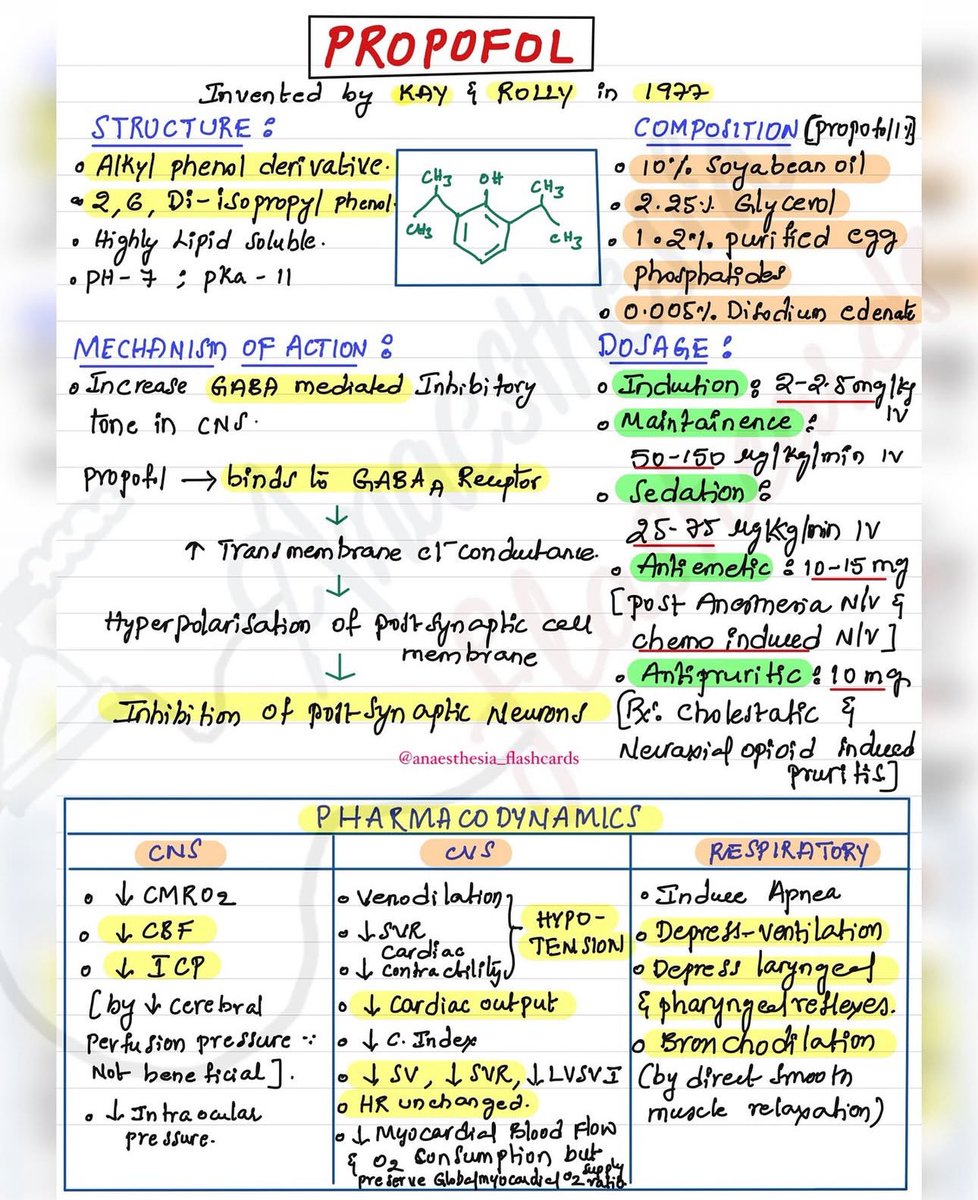 PROPOFOL
Invented by KAY & ROLLY in 1977
STRUCTURE :
• Alkyl phenol derivative.
• 2,6, Di-isopropyl phenol.
• Highly Lipid soluble.
• PH-7 ; pKa-11
CH3
OH
CH3
CH3
CH3
COMPOSITION [propofol 1%]
• 10% Soyabean oil
• 2.25% Glycerol
• 1.2% purified egg
phosphatides
• 0.005% Disodium edenate
MECHANISM OF ACTION :
• Increase GABA mediated Inhibitory
tone in CNS.
propofol → binds to GABA A Receptor
↓
↑ Transmembrane cl- conductance.
↓
Hyperpolarisation of post synaptic cell
membrane
↓
Inhibition of post-synaptic Neurons
@anaesthesia_flashcards
DOSAGE :
• Indution : 2-2.5mg/kg
IV
• Maintainence :
50-150 μg/kg/min IV
• Sedation :
25-75 μgKg/min IV
• Antiemetic : 10-15 mg
[post Anesthesia N/V &
chemo induced N/V]
• Antipruritic : 10 mg
[Rx: Cholestatic &
Neuraxial opioid induced
pruritis]
PHARMACODYNAMICS
CNS
• ↓ CMRO2
• ↓ CBF
• ↓ ICP
[by ↓ cerebral
Perfusion pressure ∵
Not beneficial].
• ↓ Intraocular
pressure.
CVS
• Venodilation
• ↓ SVR
• ↓ Cardiac
contractility
HYPO-
TENSION
• ↓ Cardiac output
• ↓ C. Index
• ↓ SV, ↓ SVR, ↓ LVSVI
• HR unchanged.
• ↓ Myocardial Blood Flow
& O2 Consumption but
preserve Global myocardial O2 supply
ratio
RESPIRATORY
• Induce Apnea
• Depress-ventilation
• Depress laryngeal
& pharyngeal reflexes.
• Bronchodilation
(by direct smooth
muscle relaxation)
Anaesthesia
flashcards